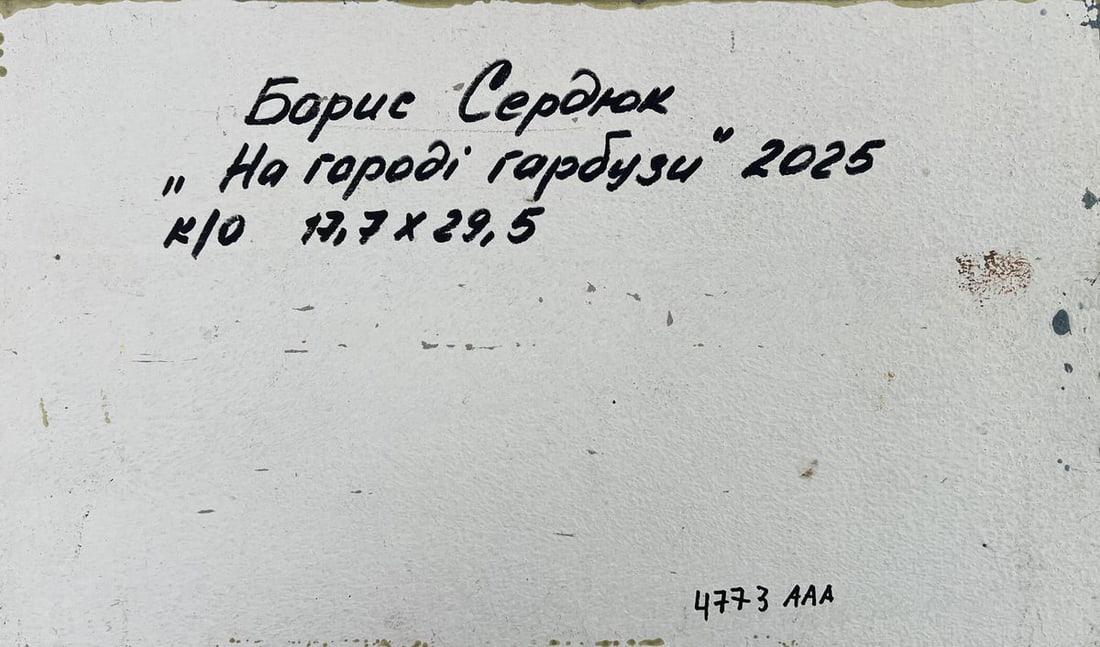 Борис Сердюк
„На городі гарбузи" 2025
к/о 17,7 х 29,5
4773 ААА